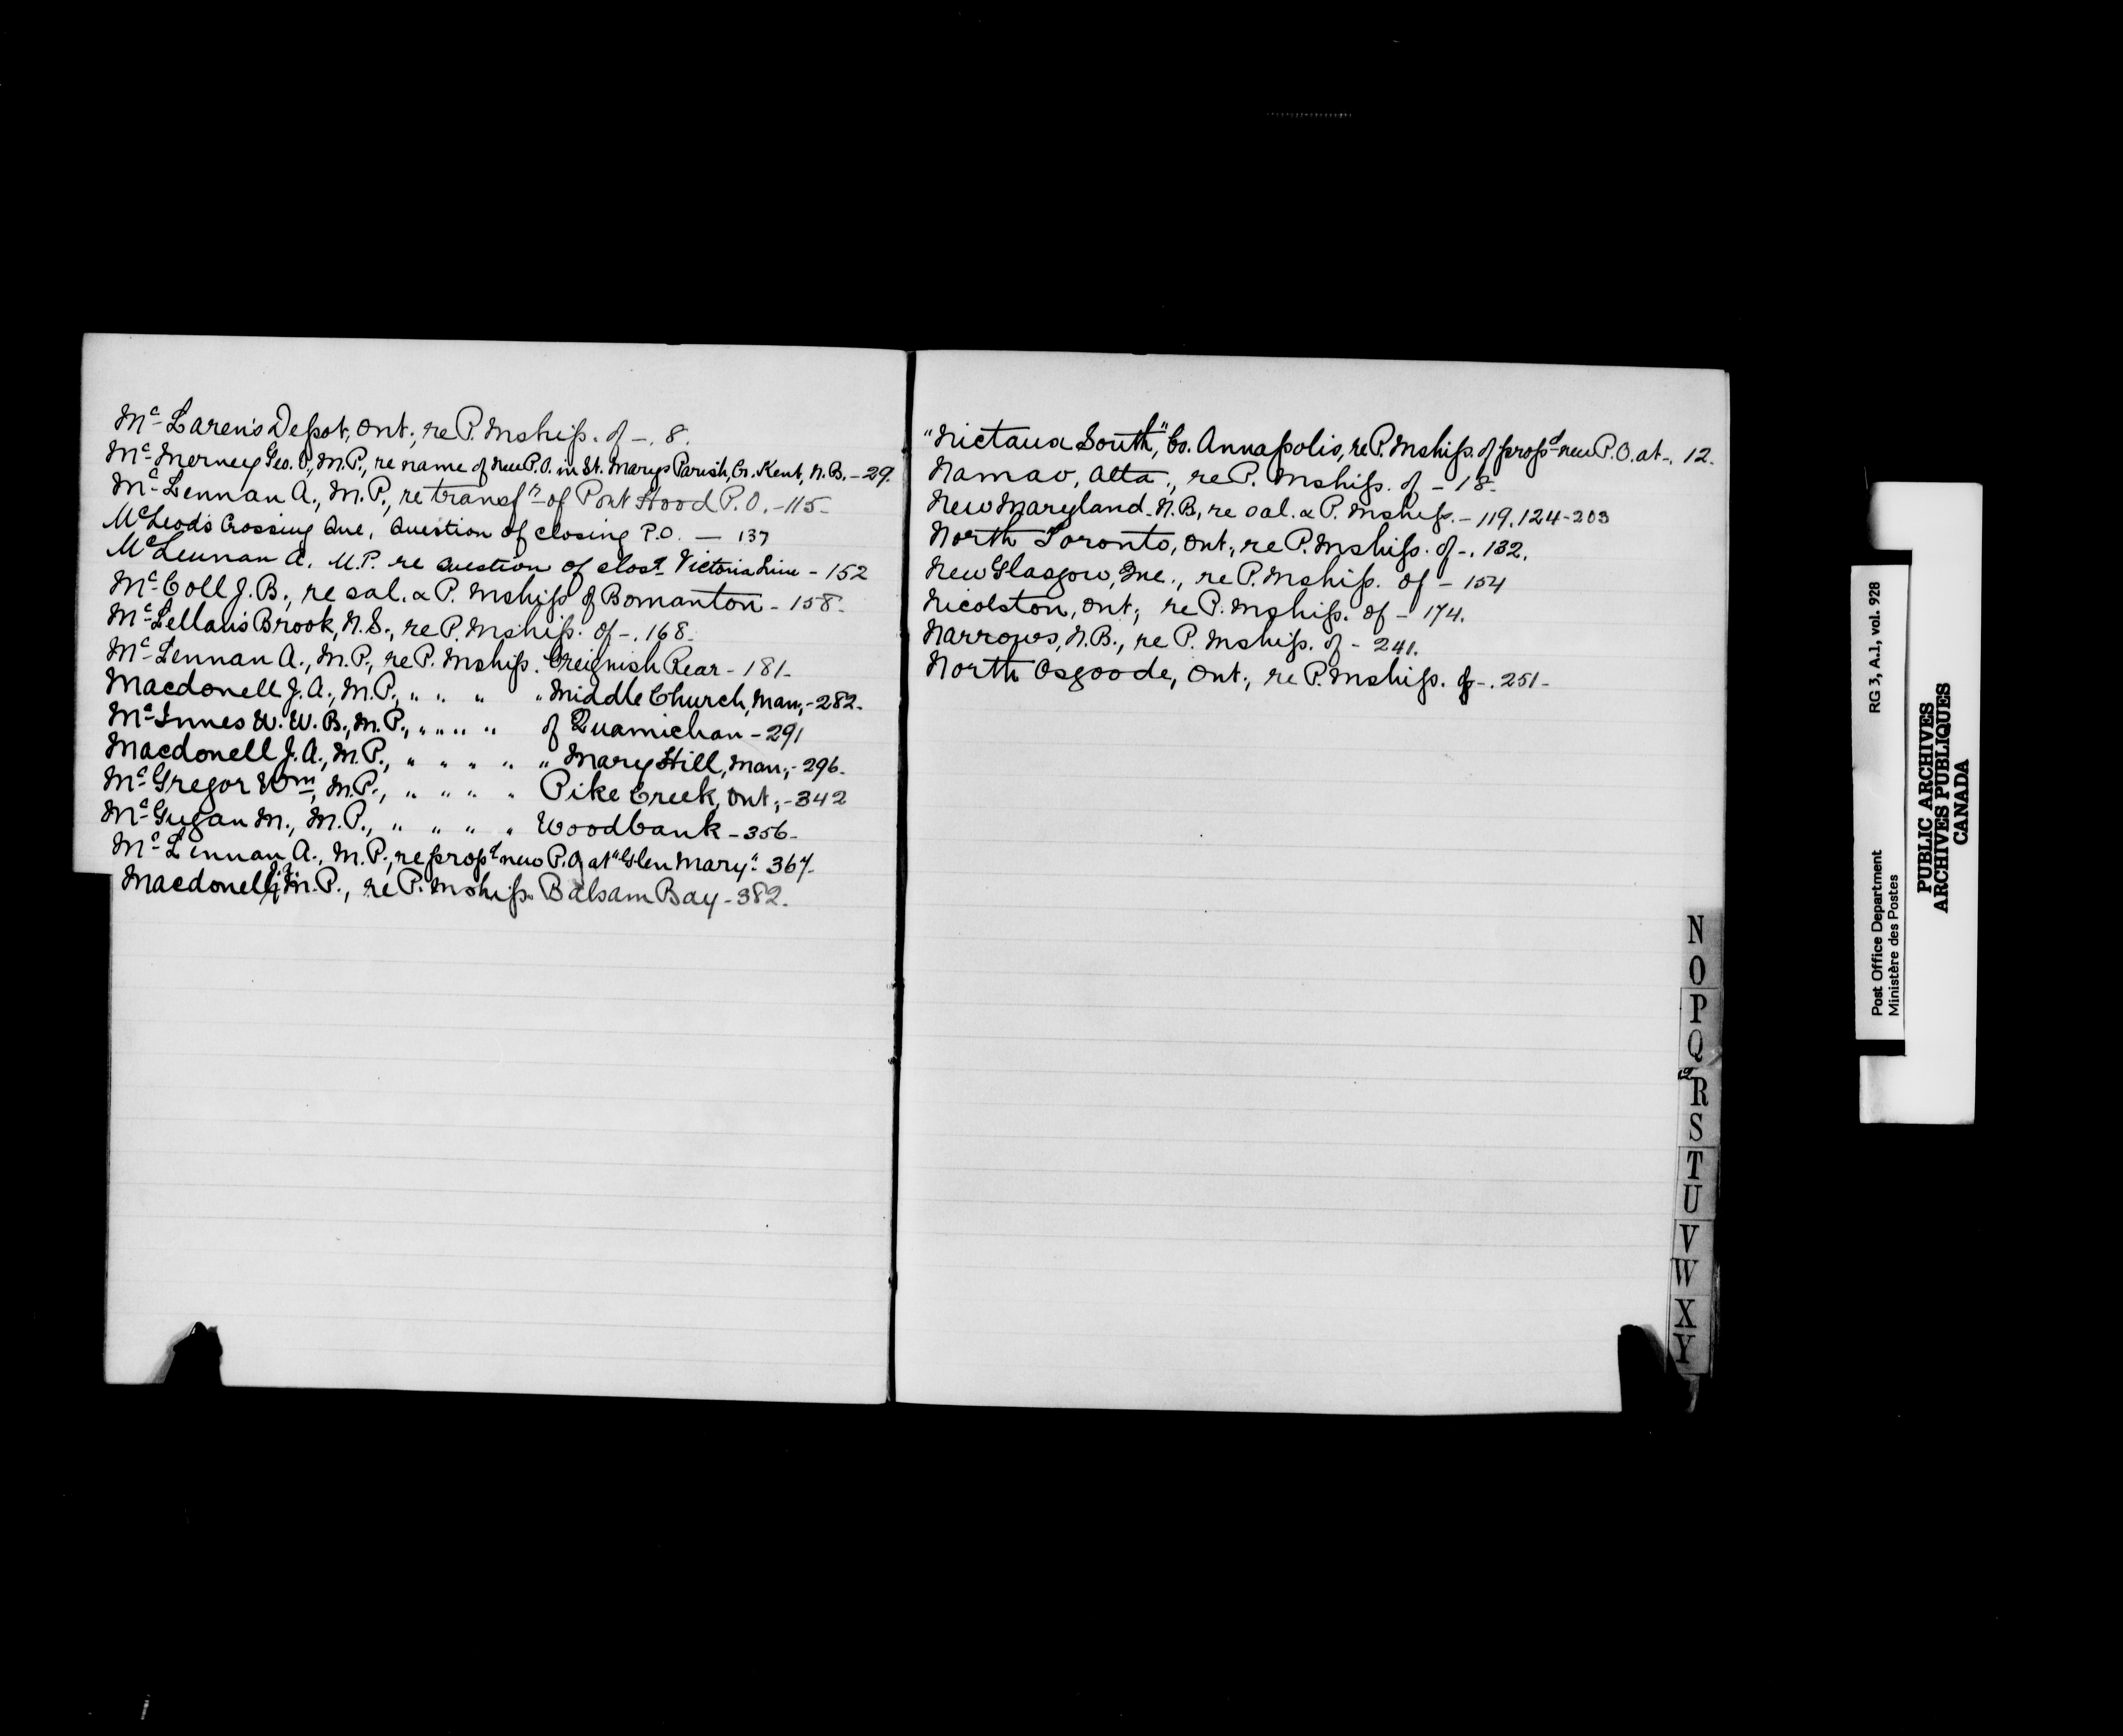 Mc Laren's Depot, Ont., re P. Mship. of -. 8.
Mc Inerney Geo. V., M.P., re name of new P.O. in St. Marys Parish, Co. Kent, N.B. - 29.
Mc Lennan A., M.P., re transfr of Port Hood P.O. - 115-
McLeod's Crossing Que, Question of closing P.O. — 137
McLennan A. M.P. re Question of closg Victoria Line - 152
Mc Coll J.B., re sal. & P. Mship of Bomanton - 158-
Mc Lellan's Brook, N.S., re P. Mship. of -. 168.
Mc Lennan A., M.P., re P. Mship. Creignish Rear - 181-
Macdonell J.A., M.P., " " " " Middle Church, Man, - 282.
Mc Innes W.W.B., M.P., " " " " of Quamichan - 291
Macdonell J.A., M.P., " " " " " Mary Hill, Man, - 296.
Mc Gregor Wm, M.P., " " " " Pike Creek, Ont, - 342
Mc Gugan M., M.P., " " " " Woodbank - 356-
Mc Lennan A., M.P., re propd new P.O. at "Glen Mary" 367.
Macdonell J.A. M.P., re P. Mship. Balsam Bay - 382.
"Nictaux South," Co. Annapolis, re P. Mship. of propd new P.O. at -. 12.
Namao, Alta., re P. Mship. of - 18-
New Maryland N.B, re sal. & P. Mship. - 119, 124-203
North Toronto, Ont., re P. Mship. of -. 132.
New Glasgow, Que., re P. Mship. of - 154
Nicolston, Ont., re P. Mship. of - 174.
Narrows, N.B., re P. Mship. of - 241.
North Osgoode, Ont., re P. Mship. of -. 251-
N
O
P
Q
R
S
T
U
V
W
X
Y
Post Office Department RG 3, A.1, vol. 928
Ministère des Postes
PUBLIC ARCHIVES
ARCHIVES PUBLIQUES
CANADA